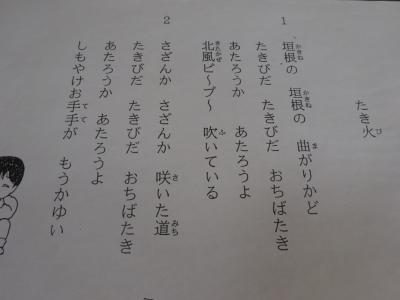 たき火
1
垣根の　垣根の　曲がりかど
たきびだ　たきびだ　おちばたき
あたろうか　あたろうよ
北風ピ～プ～　吹いている
2
さざんか　さざんか　咲いた道
たきびだ　たきびだ　おちばたき
あたろうか　あたろうよ
しもやけお手手が　もうかゆい